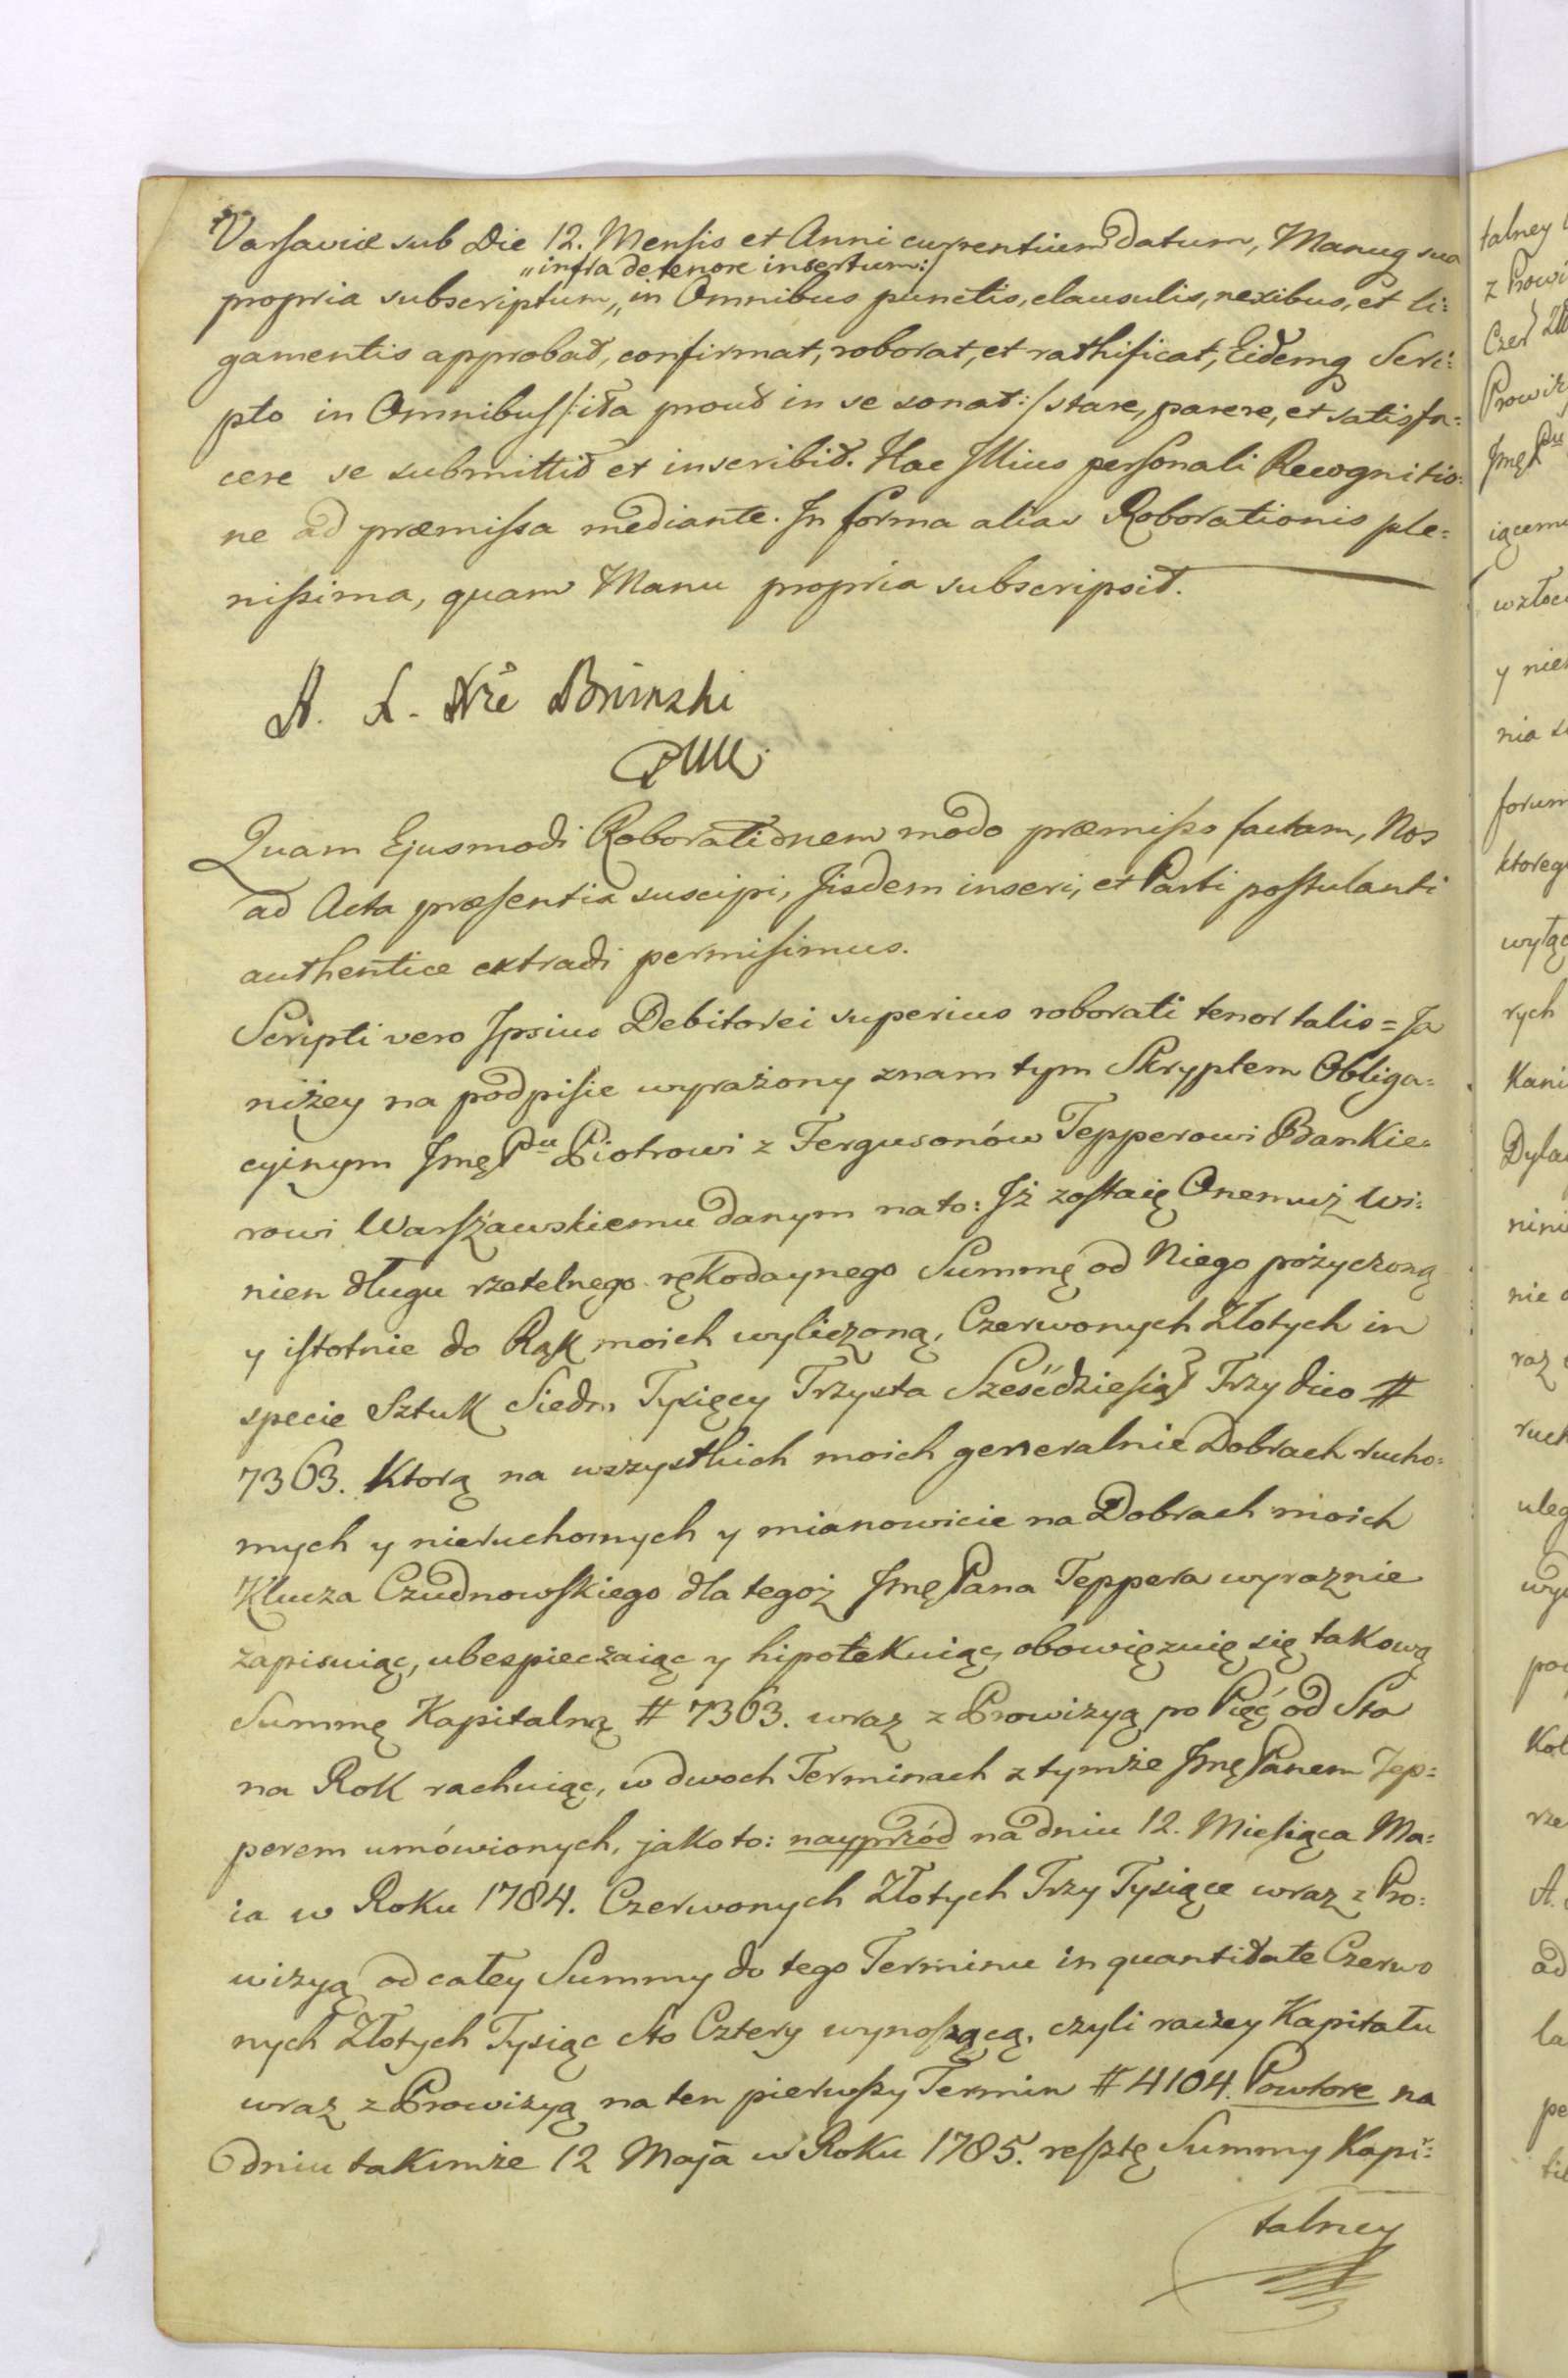 Varsaviæ sub Die 12. Mensis et Anni currentium datum, Manuq sua
„infra de tenore insertum:/
propria subscriptum„ in Omnibus punctis, clausulis, nexibus, et li:
gamentis approbat, confirmat, roborat, et rathificat, Eidemq Scri:
pto in Omnibus /:ita prout in se sonat:/ stare, parere, et satisfa:
cere se submittit et inscribit. Hac Illius personali Recognitio:
ne ad præmissa mediante. In forma alias Roborationis ple:
nissima, quam Manu propria subscripsit.
A. X. Brimski
Quam Ejusmodi Roborationem modo præmisso factam, Nos
ad Acta præsentia suscipi, Iisdem inseri, et Parti postulanti
authentice extradi permisimus.
Scripti vero Ipsius Debitorei superius roborati tenor talis = Ja
niżey na podpisie wyrażony znam tym Skryptem Obliga:
cyinym Jmę Pu Piotrowi z Fergusonów Tepperowi Bankie:
rowi Warszawskiemu danym na to: Iż zostaię Onemuż Wi:
nien długu rzetelnego rękodaynego Summę od Niego pożyczoną
y istotnie do Rąk moich wyliczoną, Czerwonych Złotych in
specie Sztuk Siedm Tysięcy Trzysta Sześćdziesiąt Trzy dico #
7363. Ktorą na wszystkich moich generalnie Dobrach rucho:
mych y nieruchomych y mianowicie na Dobrach moich
Klucza Czudnowskiego dla tegoż Jmę Pana Teppera wyraznie
zapisuiąc, ubespieczaiąc y hipotekuiąc, obowięzuię się takową
Summę Kapitalną # 7363. wraz z Prowizyą po Pięć od Sta
na Rok rachuiąc, w dwoch Terminach z tymże Jmę Panem Tep:
perem umówionych, jako to: nayprzód na dniu 12. Miesiąca Ma:
ia w Roku 1784. Czerwonych Złotych Trzy Tysiące wraz z Pro:
wizyą od całey Summy do tego Terminu in quantitate Czerwo
nych Złotych Tysiąc Sto Cztery wynoszącą, czyli raźey Kapitału
wraz z Prowizyą na ten pierwszy Termin # 4104. Powtore na
dniu takimże 12 Maja w Roku 1785. resztę Summy Kapi:
talney
talney
z Prowi
Prowiz
y nie
nia
forum
ktoreg
rych
Kani
Dyla
nini
nie
raz
ruch
uleg
ad